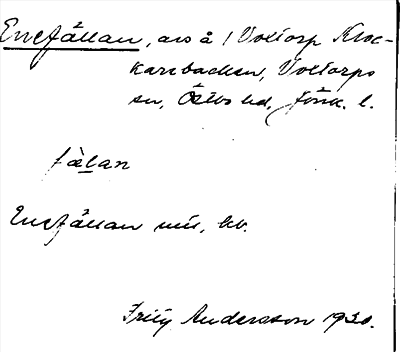 Enefällan, avs å 1 Voltorp Kroc-
karebacken, Voltorps
sn, Östbo hd, Jönk. l.
fàlan
Enefällan min, kv.
Frity Andersson 1930.